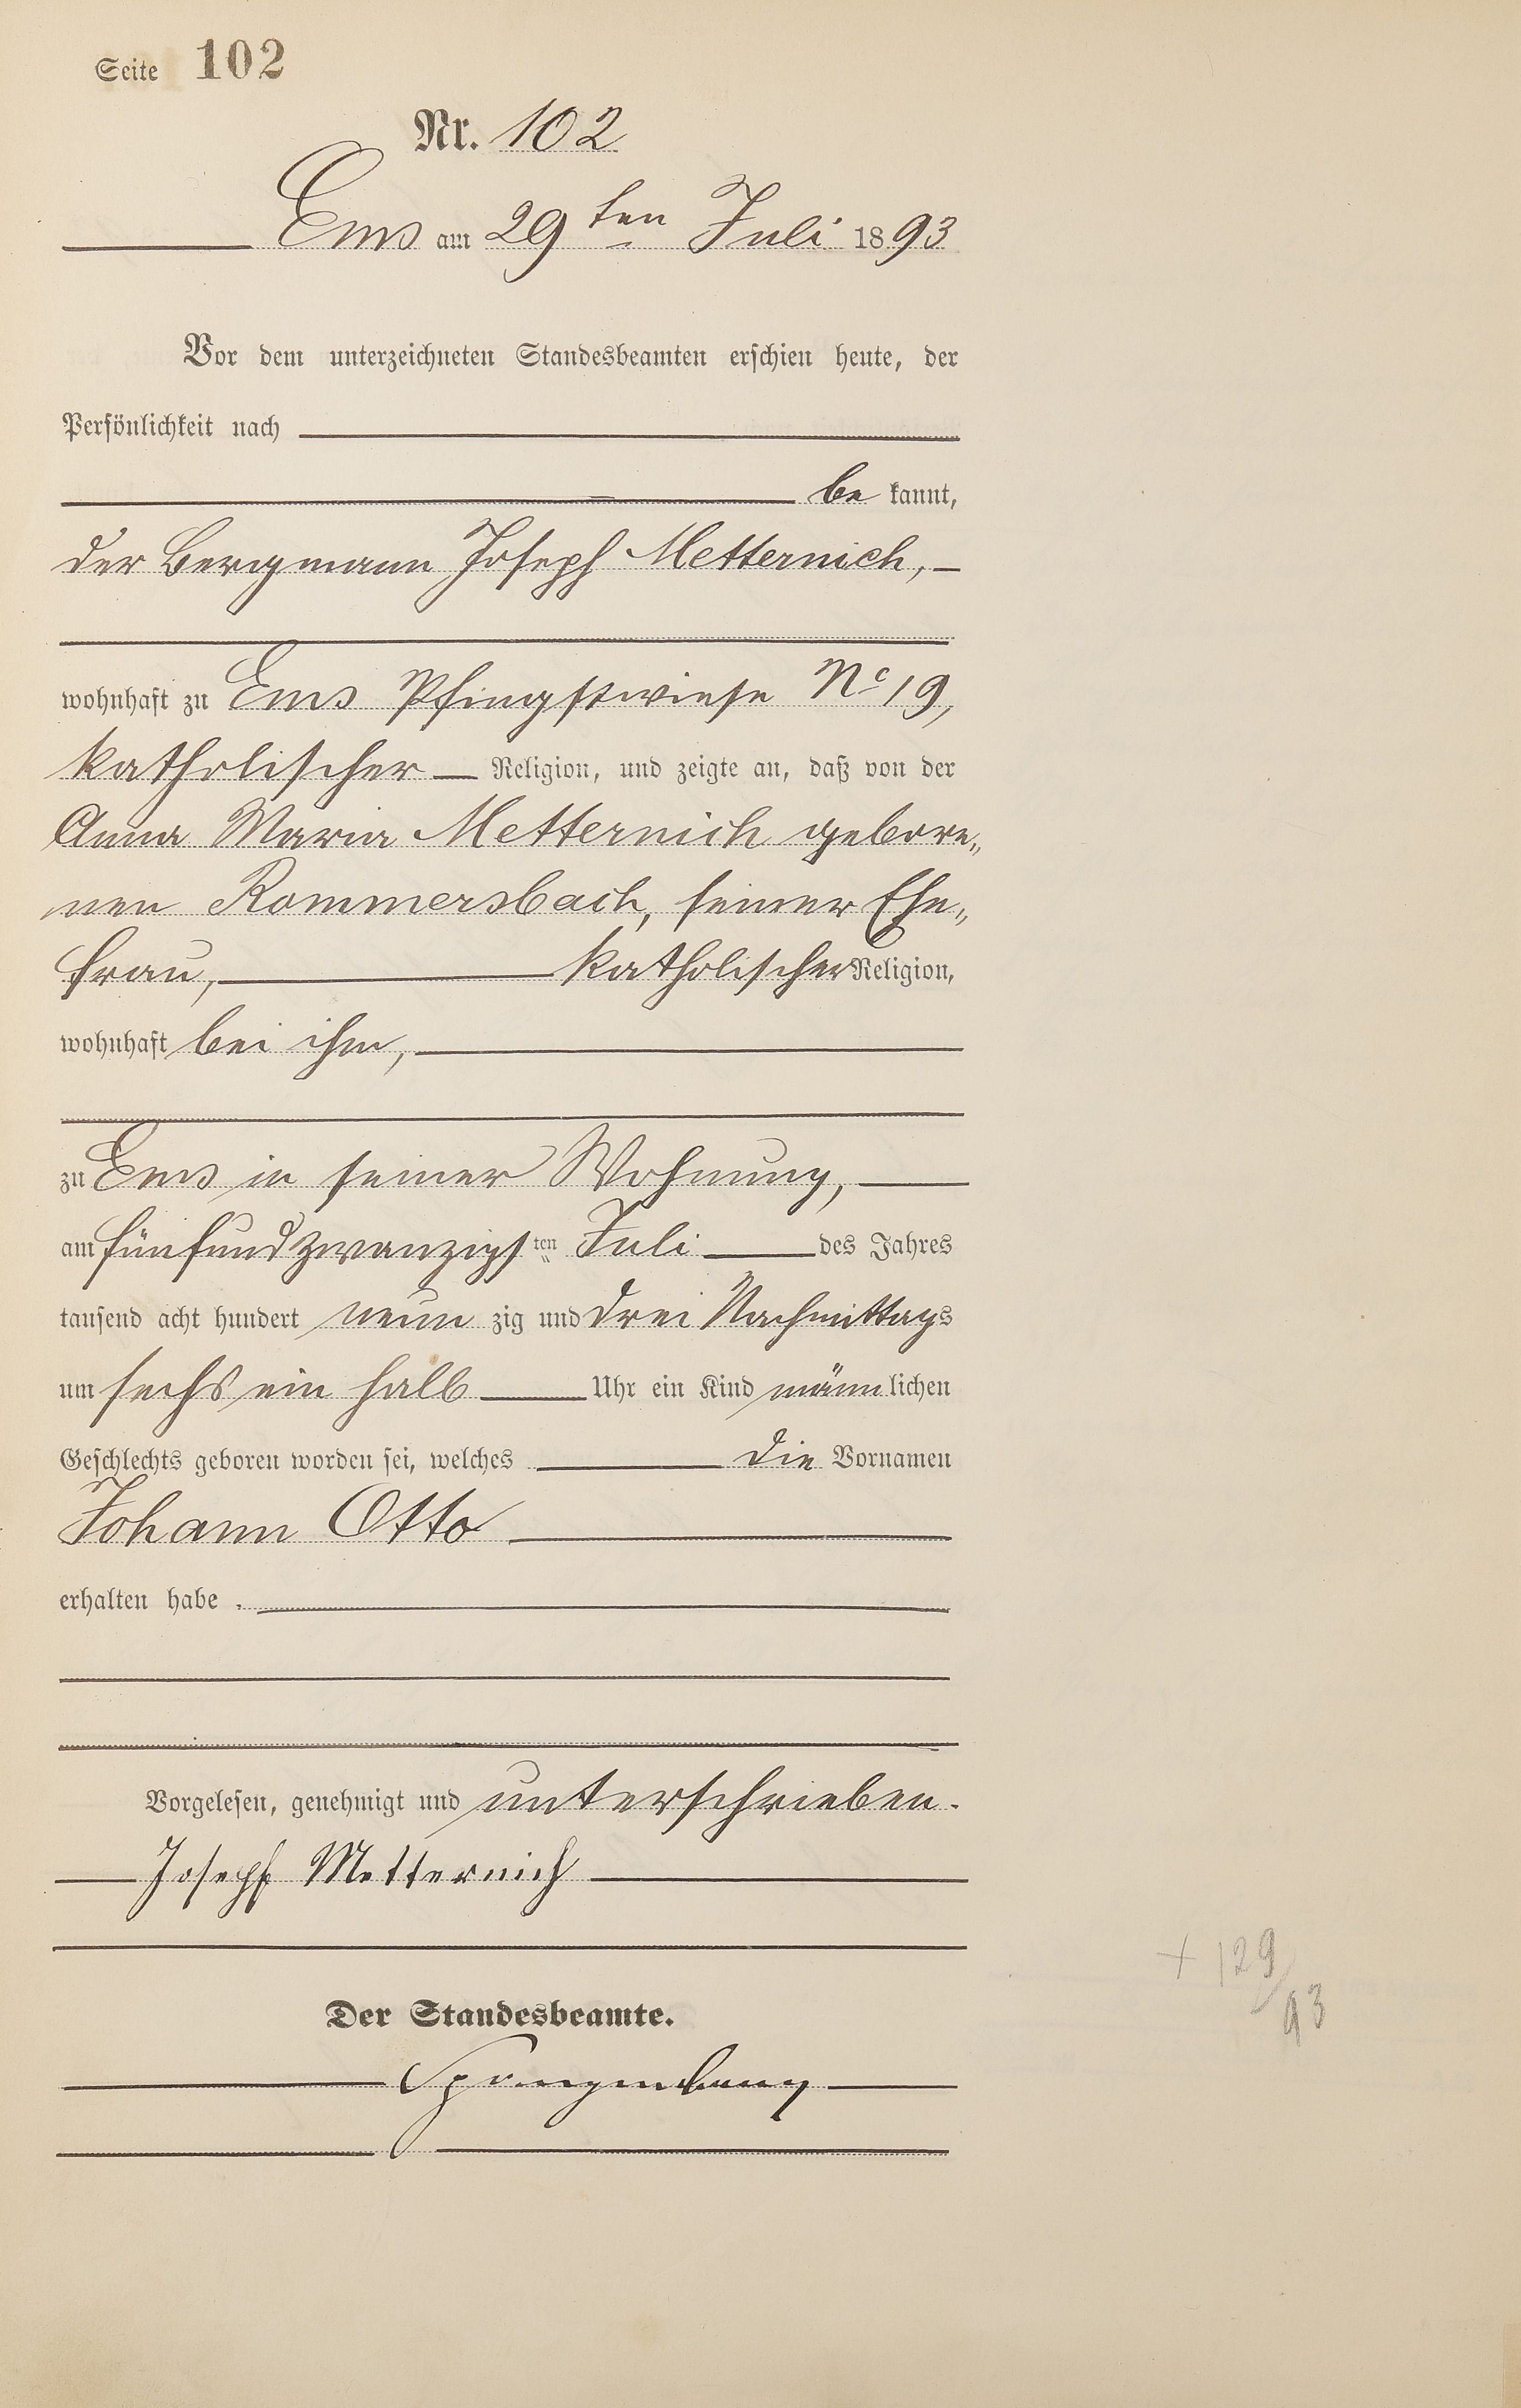 Seite 102
Nr. 102
Ems am 29ten Juli 1893
Vor dem unterzeichneten Standesbeamten erschien heute, der
Persönlichkeit nach
be kannt,
der Bergmann Joseph Metternich,
wohnhaft zu Ems Pfingstwiese No 19,
katholischer Religion, und zeigte an, daß von der
Anna Maria Metternich gebore„
nen Rommersbach, seiner Ehe„
frau, katholischer Religion,
wohnhaft bei ihm,
zu Ems in seiner Wohnung,
am fünfundzwanzigsten Juli des Jahres
tausend acht hundert neun zig und drei Nachmittags
um sechs ein halb Uhr ein Kind männlichen
Geschlechts geboren worden sei, welches die Vornamen
Johann Otto
erhalten habe.
Vorgelesen, genehmigt und unterschrieben.
Joseph Metternich
+ 129/93
Der Standesbeamte.
Spangenberg